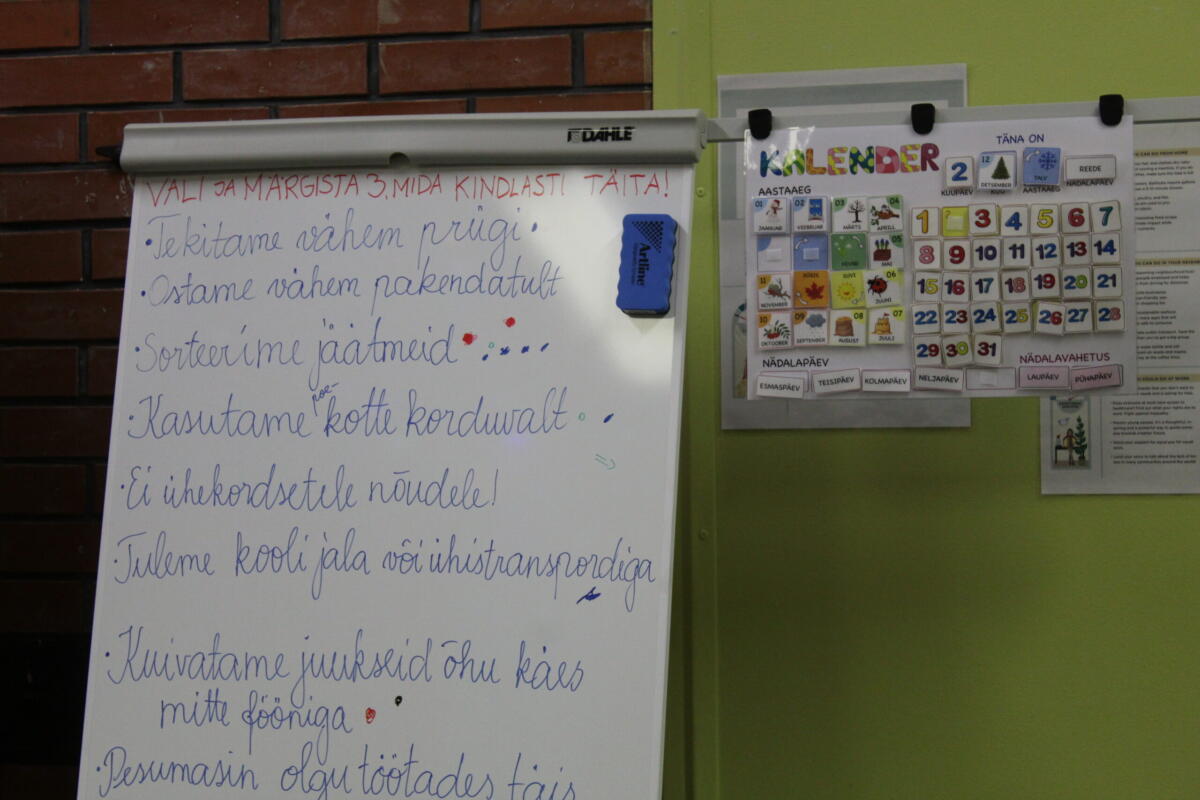 DAHLE
VALI JA MÄRGISTA 3, MIDA KINDLASTI TÄITA!
·Tekitame vähem prügi·
·Ostame vähem pakendatult
·Sorteerime jäätmeid
·Kasutame poe-kotte korduvalt
·Ei ühekordsetele nõudele!
·Tuleme kooli jala või ühistranspordiga
·Kuivatame juukseid õhu käes
mitte fööniga
·Pesumasin olgu töötades täis
Artline
KALENDER
TÄNA ON
2
12
DETSEMBER
TALV
REEDE
KUUPÄEV KUU AASTAAEG NÄDALAPÄEV
AASTAAEG
01 02 03 04
JAANUAR VEEBRUAR MÄRTS APRILL
KEVAD 05
MAI
11 SÜGIS SUVI 06
NOVEMBER JUUNI
10 09 08 07
OKTOOBER SEPTEMBER AUGUST JUULI
1 3 4 5 6 7
8 9 10 11 12 13 14
15 16 17 18 19 20 21
22 23 24 25 26 27 28
29 30 31
NÄDALAPÄEV
NÄDALAVAHETUS
ESMASPÄEV TEISIPÄEV KOLMAPÄEV NELJAPÄEV LAUPÄEV PÜHAPÄEV